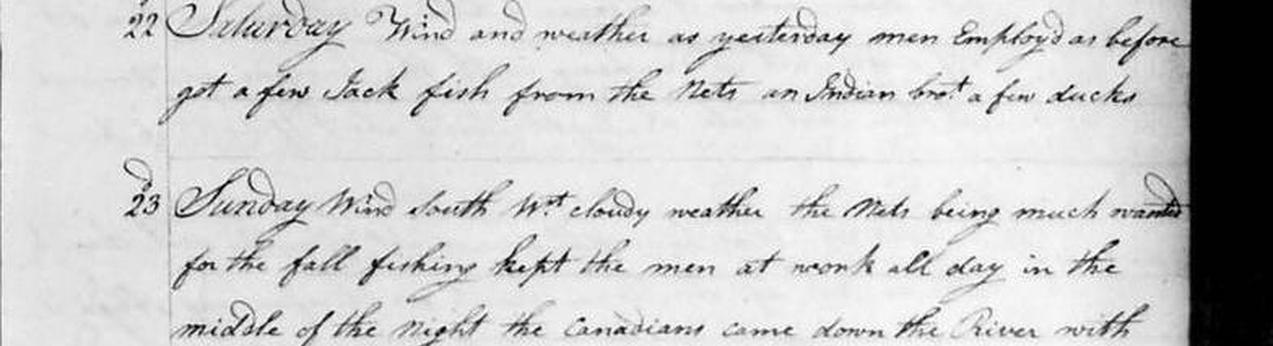 22 Saturday Wind and weather as yesterday men Employd as before
got a few Jack fish from the Nets an Indian brot a few ducks
23 Sunday Wind South Wt cloudy weather the Nets being much wanted
for the fall fishing kept the men at work all day in the
middle of the Night the Canadians came down the River with